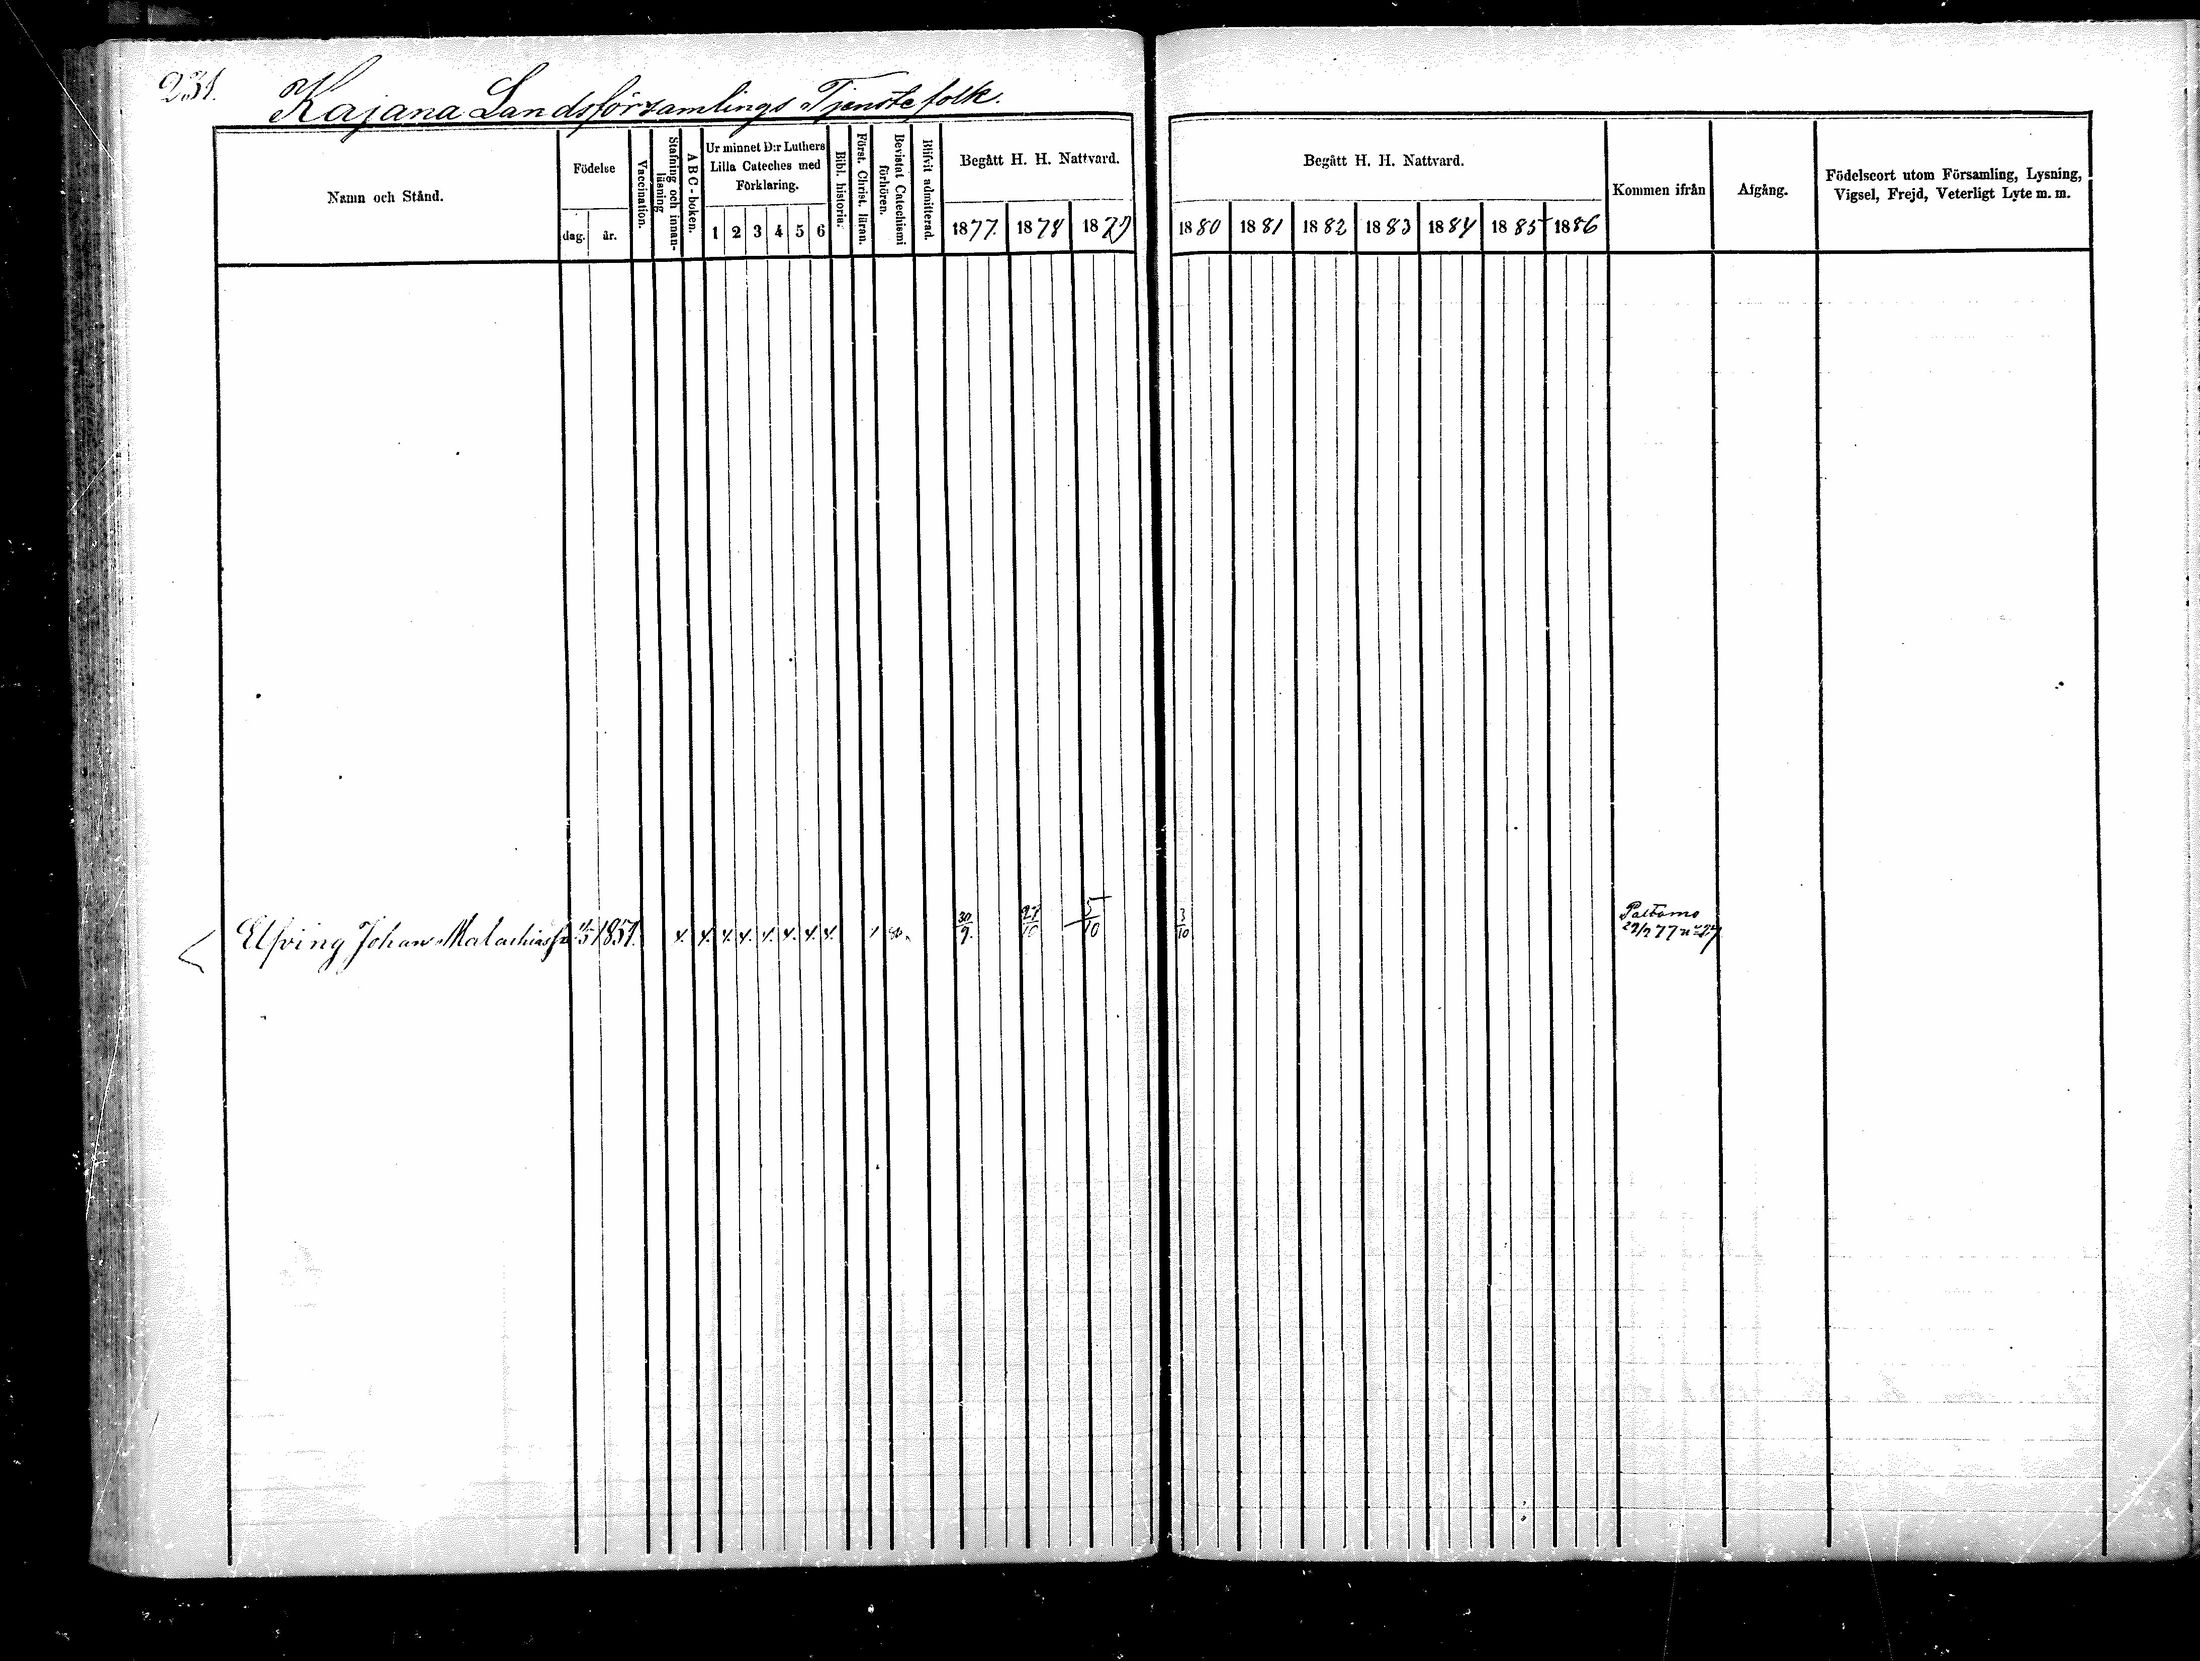 231.
Kajana Landsförsamlings Tjenstefolk.
Namn och Stånd.
Födelse
dag. år.
Vaccination.
Stafning och innan-läsning
ABC-boken.
Ur minnet D:r Luthers
Lilla Cateches med
Förklaring.
1 2 3 4 5 6
Bibl. historia.
Först. Christ. läran.
Bevistat Catechismi förhören.
Blifvit admitterad.
Begått H. H. Nattvard.
1877. 1878 1879
Begått H. H. Nattvard.
1880 1881 1882 1883 1884 1885 1886
Kommen ifrån
Afgång.
Födelseort utom Församling, Lysning,
Vigsel, Frejd, Veterligt Lyte m. m.
Elfving Johan Malachiass 1851. 4. 4. 4. 4. 4. 4. 4. 4. 30/9. 27/10 5/10 3/10
Paltamo